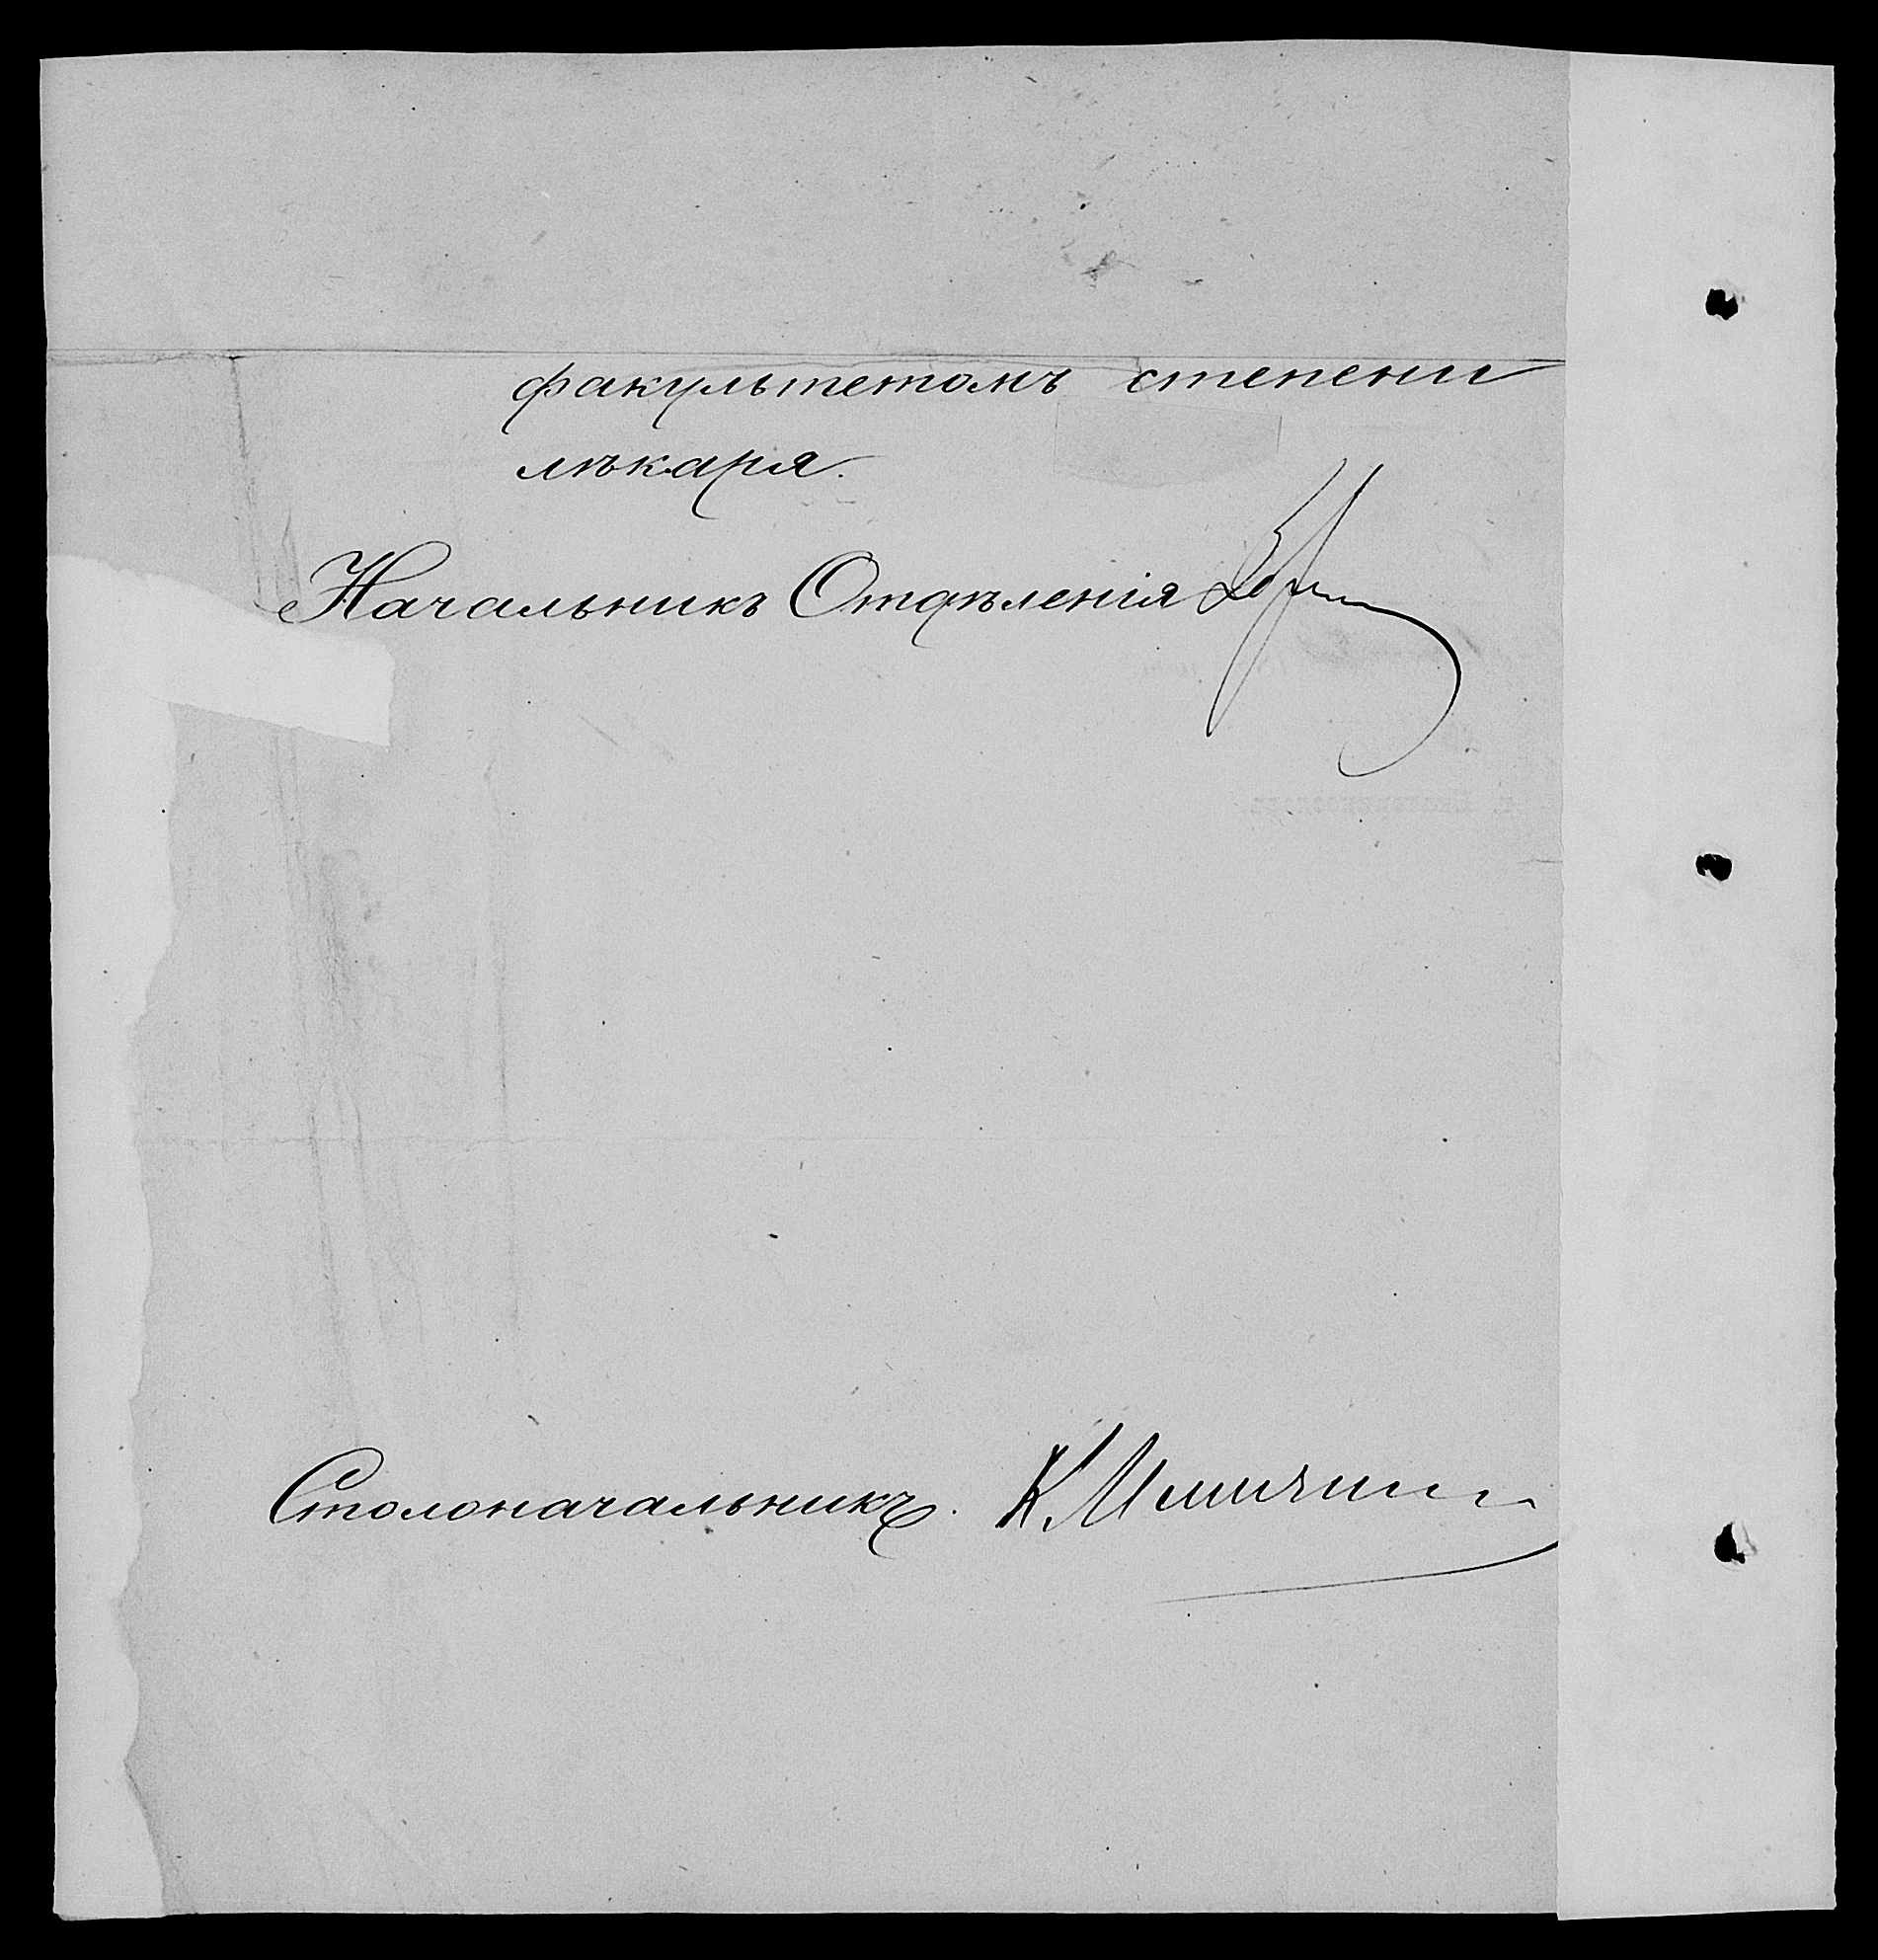 факультетомъ степени
лѣкаря.
Начальникъ Отдѣленія
Столоначальникъ. К.